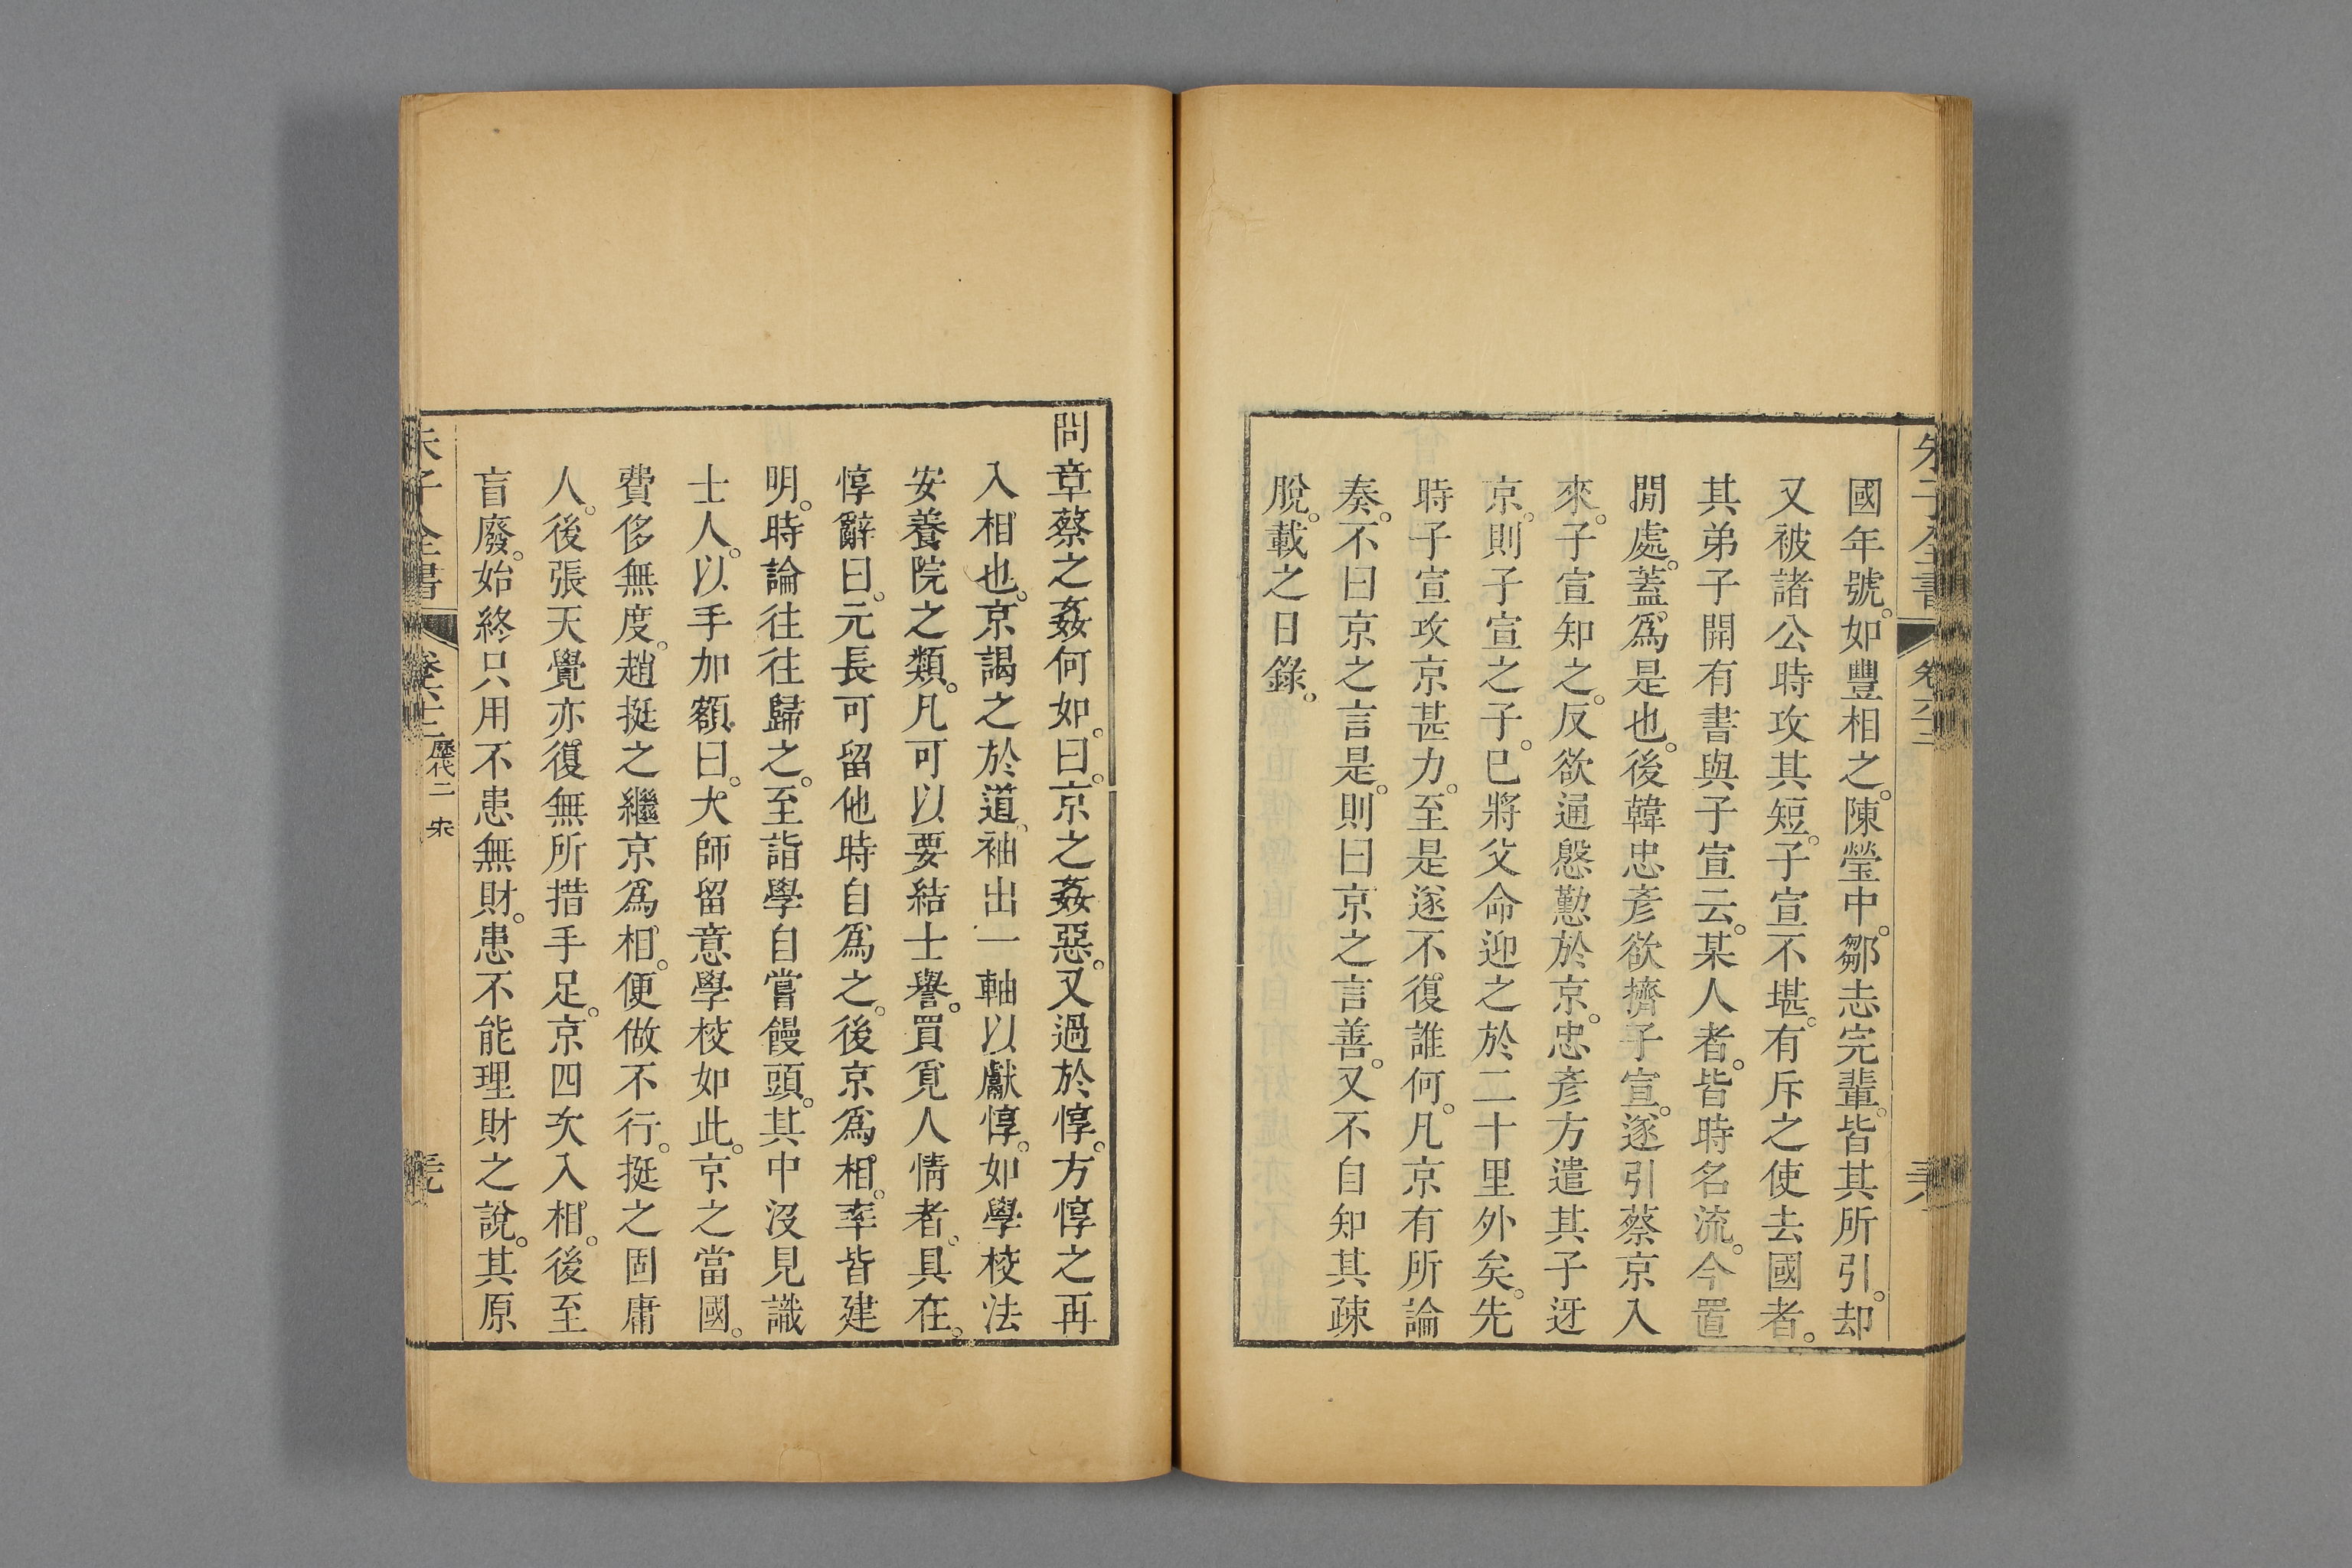 國年號。如豐相之。陳瑩中。鄒志完輩。皆其所引。却
又被諸公時攻其短。子宣不堪。有斥之使去國者。
其弟子開有書與子宣云。某人者。皆時名流。今置
閒處。蓋爲是也。後韓忠彥欲擠子宣。遂引蔡京入
來。子宣知之。反欲通慇懃於京。忠彥方遣其子迓
京。則子宣之子。已將父命迎之於二十里外矣。先
時子宣攻京甚力。至是遂不復誰何。凡京有所論
奏。不曰京之言是。則曰京之言善。又不自知其疎
脫。載之日錄。
問章蔡之姦何如。曰。京之姦惡。又過於惇。方惇之再
入相也。京謁之於道。袖出一軸以獻惇。如學校法
安養院之類。凡可以要結士譽。買覓人情者。具在。
惇辭曰。元長可留他時自爲之。後京爲相。率皆建
明。時論往往歸之。至詣學自嘗饅頭。其中沒見識
士人。以手加額曰。大師留意學校如此。京之當國。
費侈無度。趙挺之繼京爲相。便做不行。挺之固庸
人。後張天覺亦復無所措手足。京四次入相。後至
盲廢。始終只用不患無財。患不能理財之說。其原
朱子全書 卷六十二 歷代二 宋